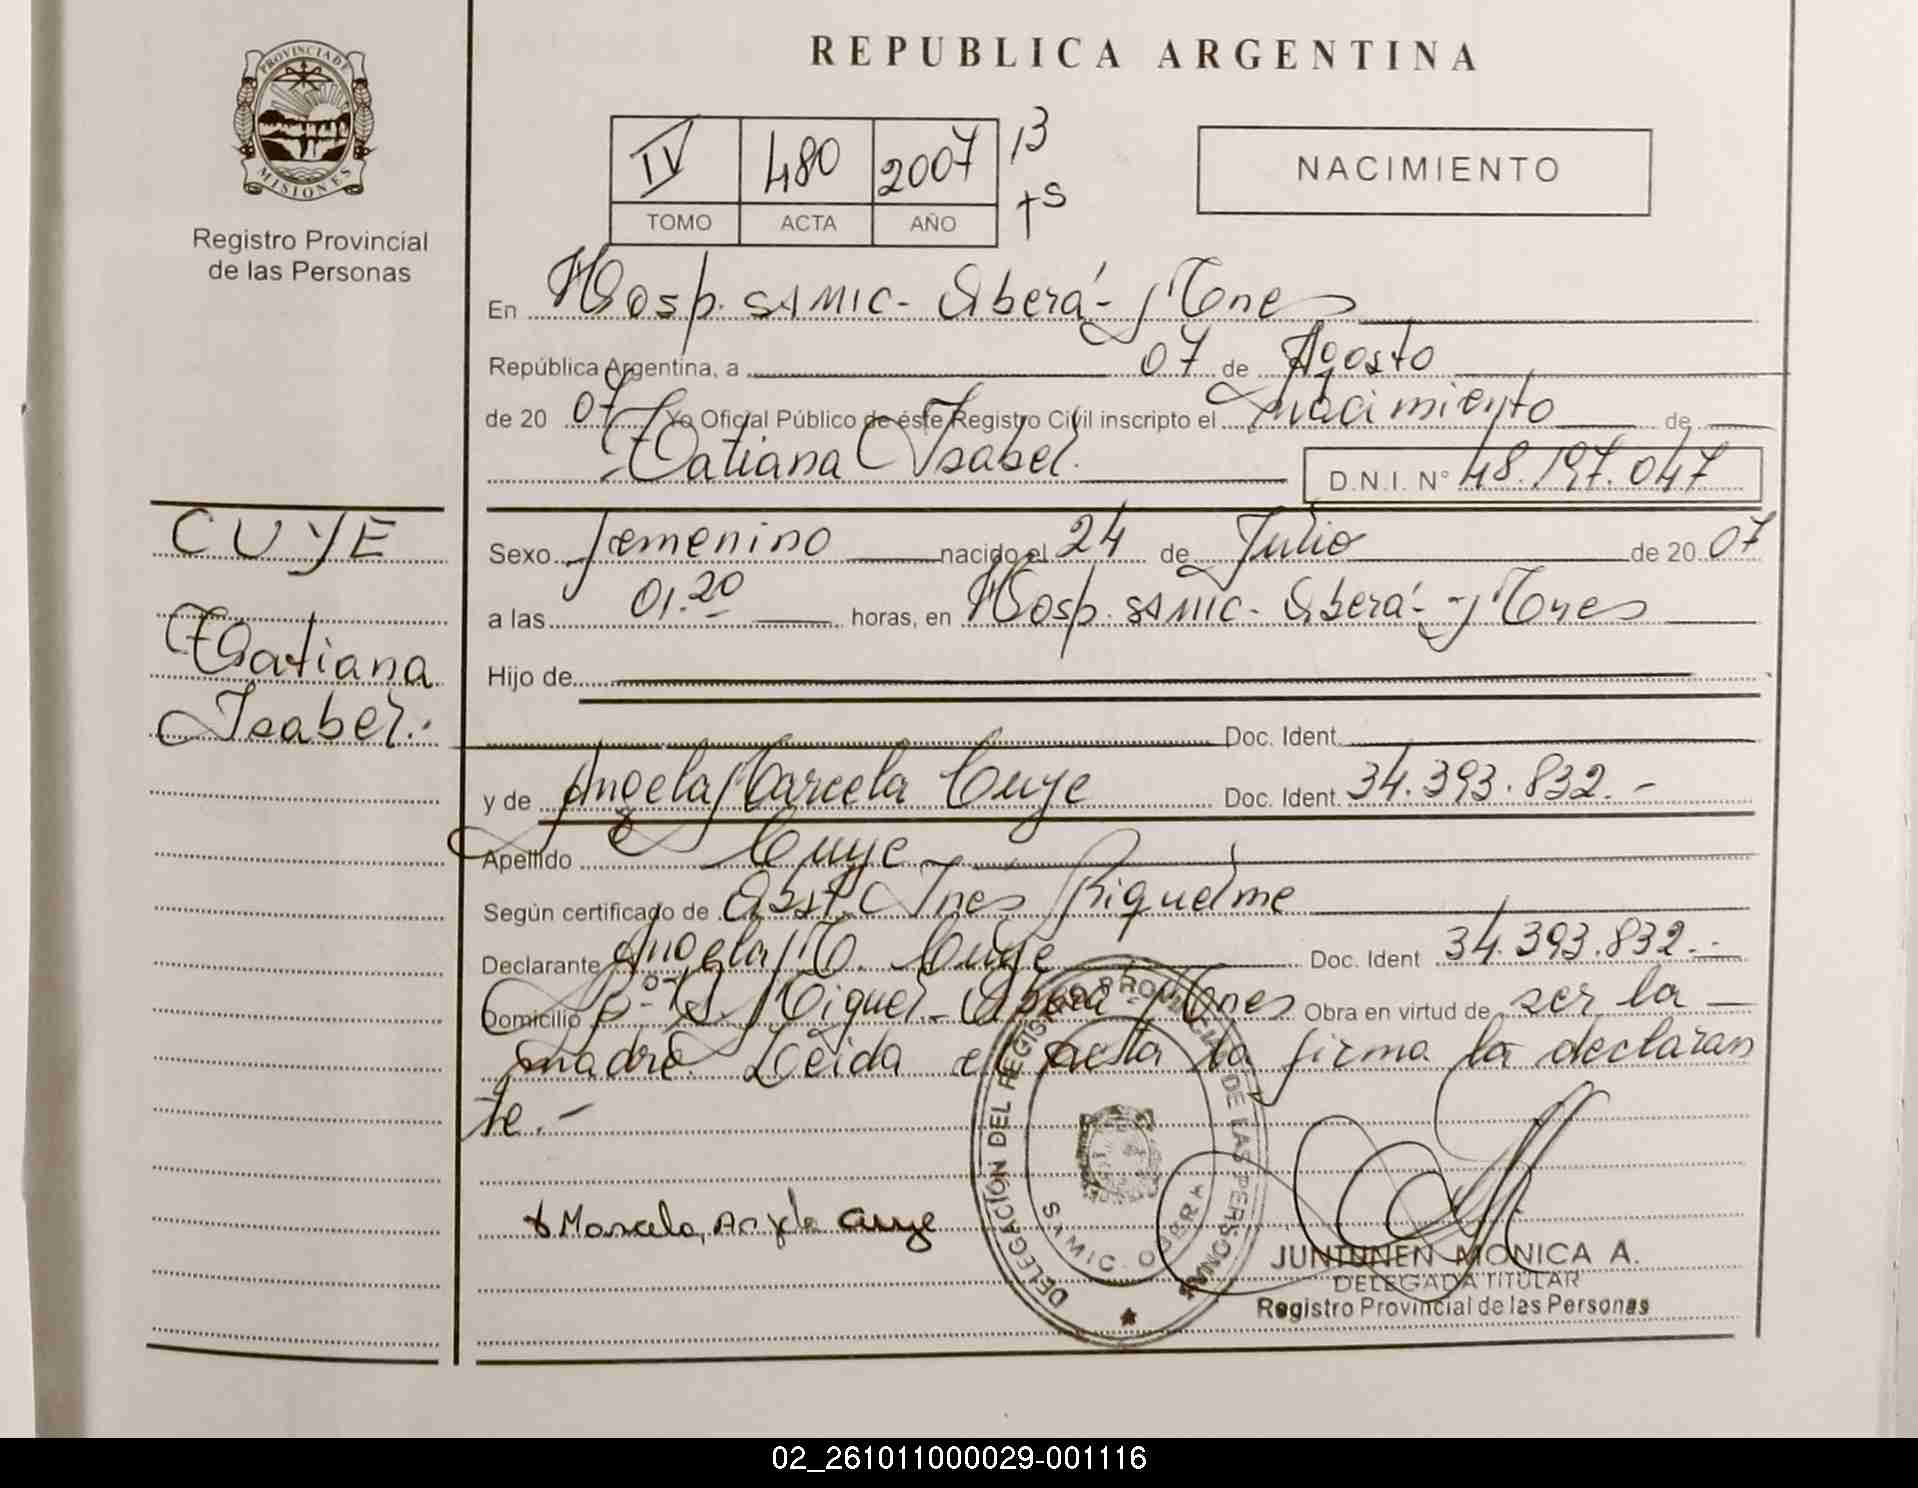 PROVINCIA DE
MISIONES
Registro Provincial
de las Personas
REPUBLICA ARGENTINA
IV 480 2007 13
TOMO ACTA AÑO
NACIMIENTO
En Hosp. SAMIC - Oberá - Mnes
República Argentina, a 07 de Agosto
de 20 07 Yo Oficial Público de éste Registro Civil inscripto el nacimiento de
Tatiana Isabel. D.N.I. N° 48.197.047
CUYE
Tatiana
Isabel.
Sexo femenino nacido el 24 de Julio de 20 07
a las 01.20 horas, en Hosp. SAMIC - Oberá - Mnes
Hijo de
Doc. Ident.
y de Angela Marcela Cuye Doc. Ident. 34.393.832.-
Apellido Cuye
Según certificado de Obst. Ines Riquelme
Declarante Angela M. Cuye Doc. Ident 34.393.832.-
Domicilio B° S. Miguel - Oberá - Mnes Obra en virtud de ser la
madre. Leida el acta la firma la declaran
te.-
Marcela, Angela Cuye
DELEGACIÓN DEL REGISTRO PROVINCIAL DE LAS PERSONAS
SAMIC. OBERA
JUNTUNEN MONICA A.
DELEGADA TITULAR
Registro Provincial de las Personas
02_261011000029-001116